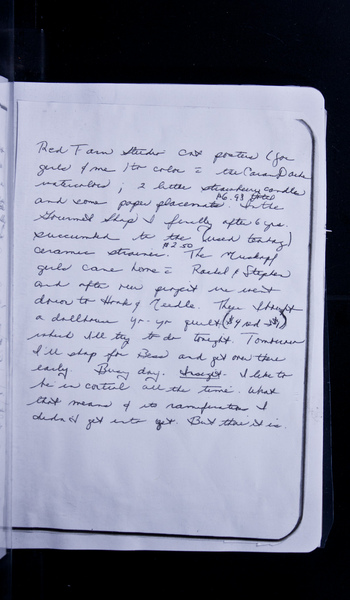 Red Farm Studio cat posters (for
girls & me) to color = the Caran D'ache
watercolors; 2 litter strawberry candles
$6.98 total
and some paper placemats. In the
Gourmet Shop I finally after 6 yrs.
succumbed to the (used teabag)
$2.50
ceramic strainer. The
girls came home = Rachel & Stephen
and after we went
down to Hook & Needle. There I bought
a dollhouse yo-yo quilt ($4 red $9)
which I'll try to do tonight. Tomorrow
I'll shop for and get over there
early. Busy day. Insight. I like to
be in control all the time. What
that means & its ramifications I
didn't get into yet. But there it is.